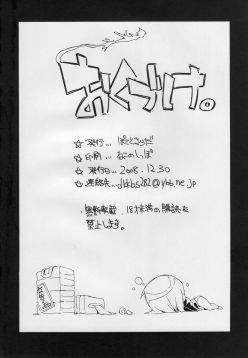 おくづけ。
☆ 発行…
☆ 印刷… ねこのしっぽ
☆ 発行日… 2008.12.30
☆ 連絡先…
・無断転載、18才未満の購読を
禁止します。